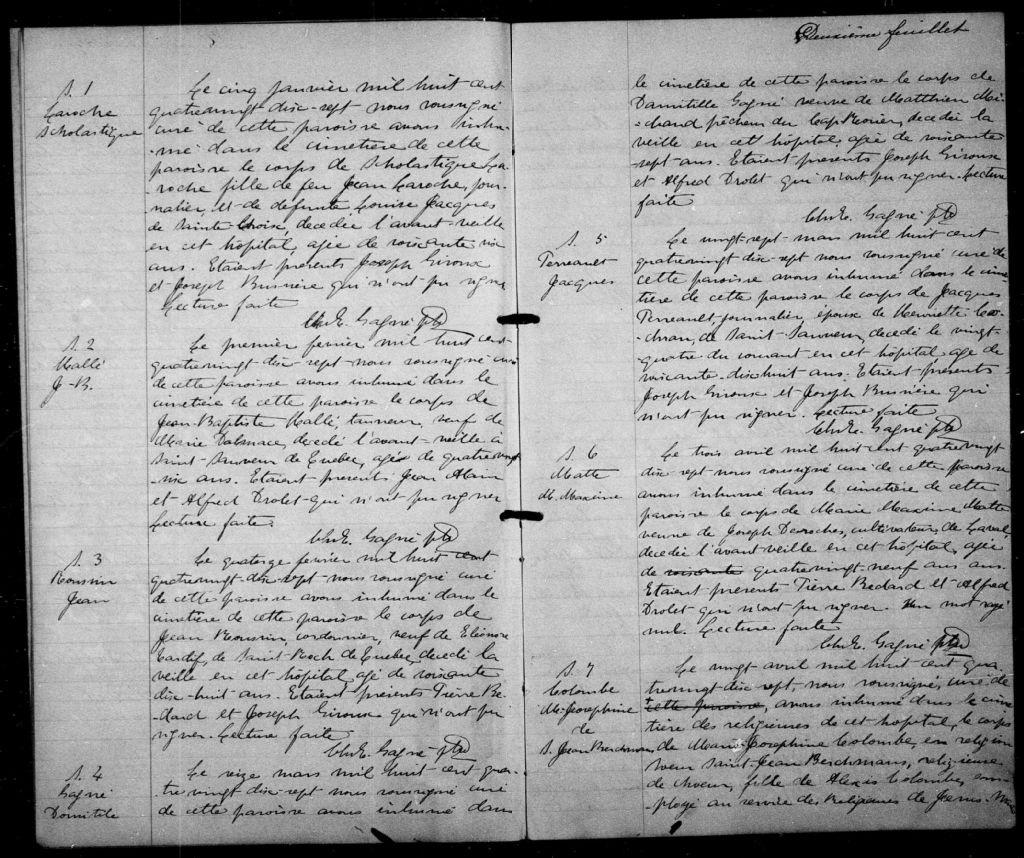 S. 1
Laroche
Scholastique
Le cinq janvier mil huit cent
quatrevingt-dix-sept nous soussigné
curé de cette paroisse avons inhu-
-mé dans le cimetière de cette
paroisse le corps de Scholastique La-
-roche fille de feu Jean Laroche, jour-
-nalier, et de defunte Louise Jacques
de Sainte-Croix, decedée l'avant-veille
en cet hôpital agée de soixante six
ans. Etaient presents Joseph Giroux
et Joseph Bussière qui n'ont pu signer
Lecture faite
Chs E. Gagné ptre
S. 2
Hallé
J-B.
Le premier fevrier mil huit cent
quatrevingt-dix-sept nous soussigné curé
de cette paroisse avons inhumé dans le
cimetière de cette paroisse le corps de
Jean-Baptiste Hallé, tanneur, veuf de
Marie decedé l'avant-veille à
Saint-Sauveur de Quebec, agé de quatrevingt
-six ans. Etaient presents Jean Alain
et Alfred Drolet qui n'ont pu signer
Lecture faite.
Chs E. Gagné ptre
S. 3
Roussin
Jean
Le quatorze fevrier mil huit cent
quatrevingt-dix-sept nous soussigné curé
de cette paroisse avons inhumé dans le
cimetière de cette paroisse le corps de
Jean Roussin, cordonnier, veuf de Eléonore
Cardif, de Saint-Roch de Quebec, decedé la
veille en cet hôpital, agé de soixante
dix-huit ans. Etaient présents Pierre Be-
-dard et Joseph Giroux qui n'ont pu
signer. Lecture faite
Chs E. Gagné ptre
S. 4
Gagné
Domitile
Le seize mars mil huit cent qua-
-tre vingt dix-sept nous soussigné curé
de cette paroisse avons inhumé dans
Deuxième feuillet
le cimetière de cette paroisse le corps de
Damitille Gagné veuve de Matthieu Mi-
-chaud pêcheur du Cap decedée la
veille en cet hôpital, agée de soixante
sept ans. Etaient presents Joseph Giroux
et Alfred Drolet qui n'ont pu signer. Lecture
faite
Chs E. Gagné ptre
S. 5
Perreault
Jacques
Le vingt-sept mars mil huit cent
quatrevingt dix-sept nous soussigné curé de
cette paroisse avons inhumé dans le cime-
tière de cette paroisse le corps de Jacques
Perreault, journalier, epoux de Henriette Co-
-chran, de Saint-Sauveur, decedé le vingt-
quatre du courant en cet hôpital agé de
soixante-dix-huit ans. Etaient presents
Joseph Giroux et Joseph Bussière qui
n'ont pu signer. Lecture faite
Chs E. Gagné ptre
S. 6
Matte
M. Maxime
Le trois avril mil huit cent quatrevingt
dix-sept nous soussigné curé de cette paroisse
avons inhumé dans le cimetière de cette
paroisse le corps de Marie Maxime Matte
veuve de Joseph Desroches, cultivateur, de Laval,
decedée l'avant veille en cet hôpital, agée
de soixante quatrevingt-neuf ans ans.
Etaient presents Pierre Bedard et Alfred
Drolet qui n'ont pu signer. Un mot rayé
nul. Lecture faite
Chs E. Gagné ptre
S. 7
Colombe
M. Josephine
de
S. Jean Berchmans
Le vingt avril mil huit cent qua-
trevingt dix sept, nous soussigné, curé de
cette paroisse, avons inhumé dans le cime
tière des religieuses de cet hôpital, le corps
de Marie-Josephine Colombe, en religion
Soeur Saint-Jean Berchmans, religieuse
de choeur, fille de Alexis Colombe, em-
ployé au service des Religieuses de Jesus-Marie